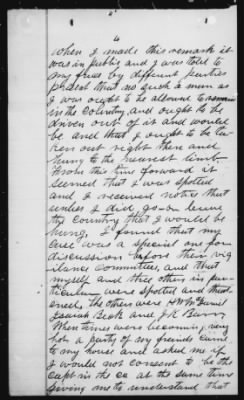 4
when I made this remark it
was in public and I was told to
my face by different parties
present that no such a man as
I was ought to be allowed to remain
in the Country, and ought to be
driven out of it and would
be and that I ought to be ta-
ken out right then and
hung to the nearest limb
From this time forward it
seemed that I was spotted
and I received notice that
unless I did go on leave
the Country that I would be
hung, I found that my
case was a special one for
discussion before their vig
ilance Committees, and that
myself and three others in par-
ticular were spotted and threat
ened, the others were
Josiah Beck and J K Burr,
When times were becoming very
hot a party of my friends came
to my house and asked me if
I would not consent to be the
Capt in the co at the same time
giving me to understand that